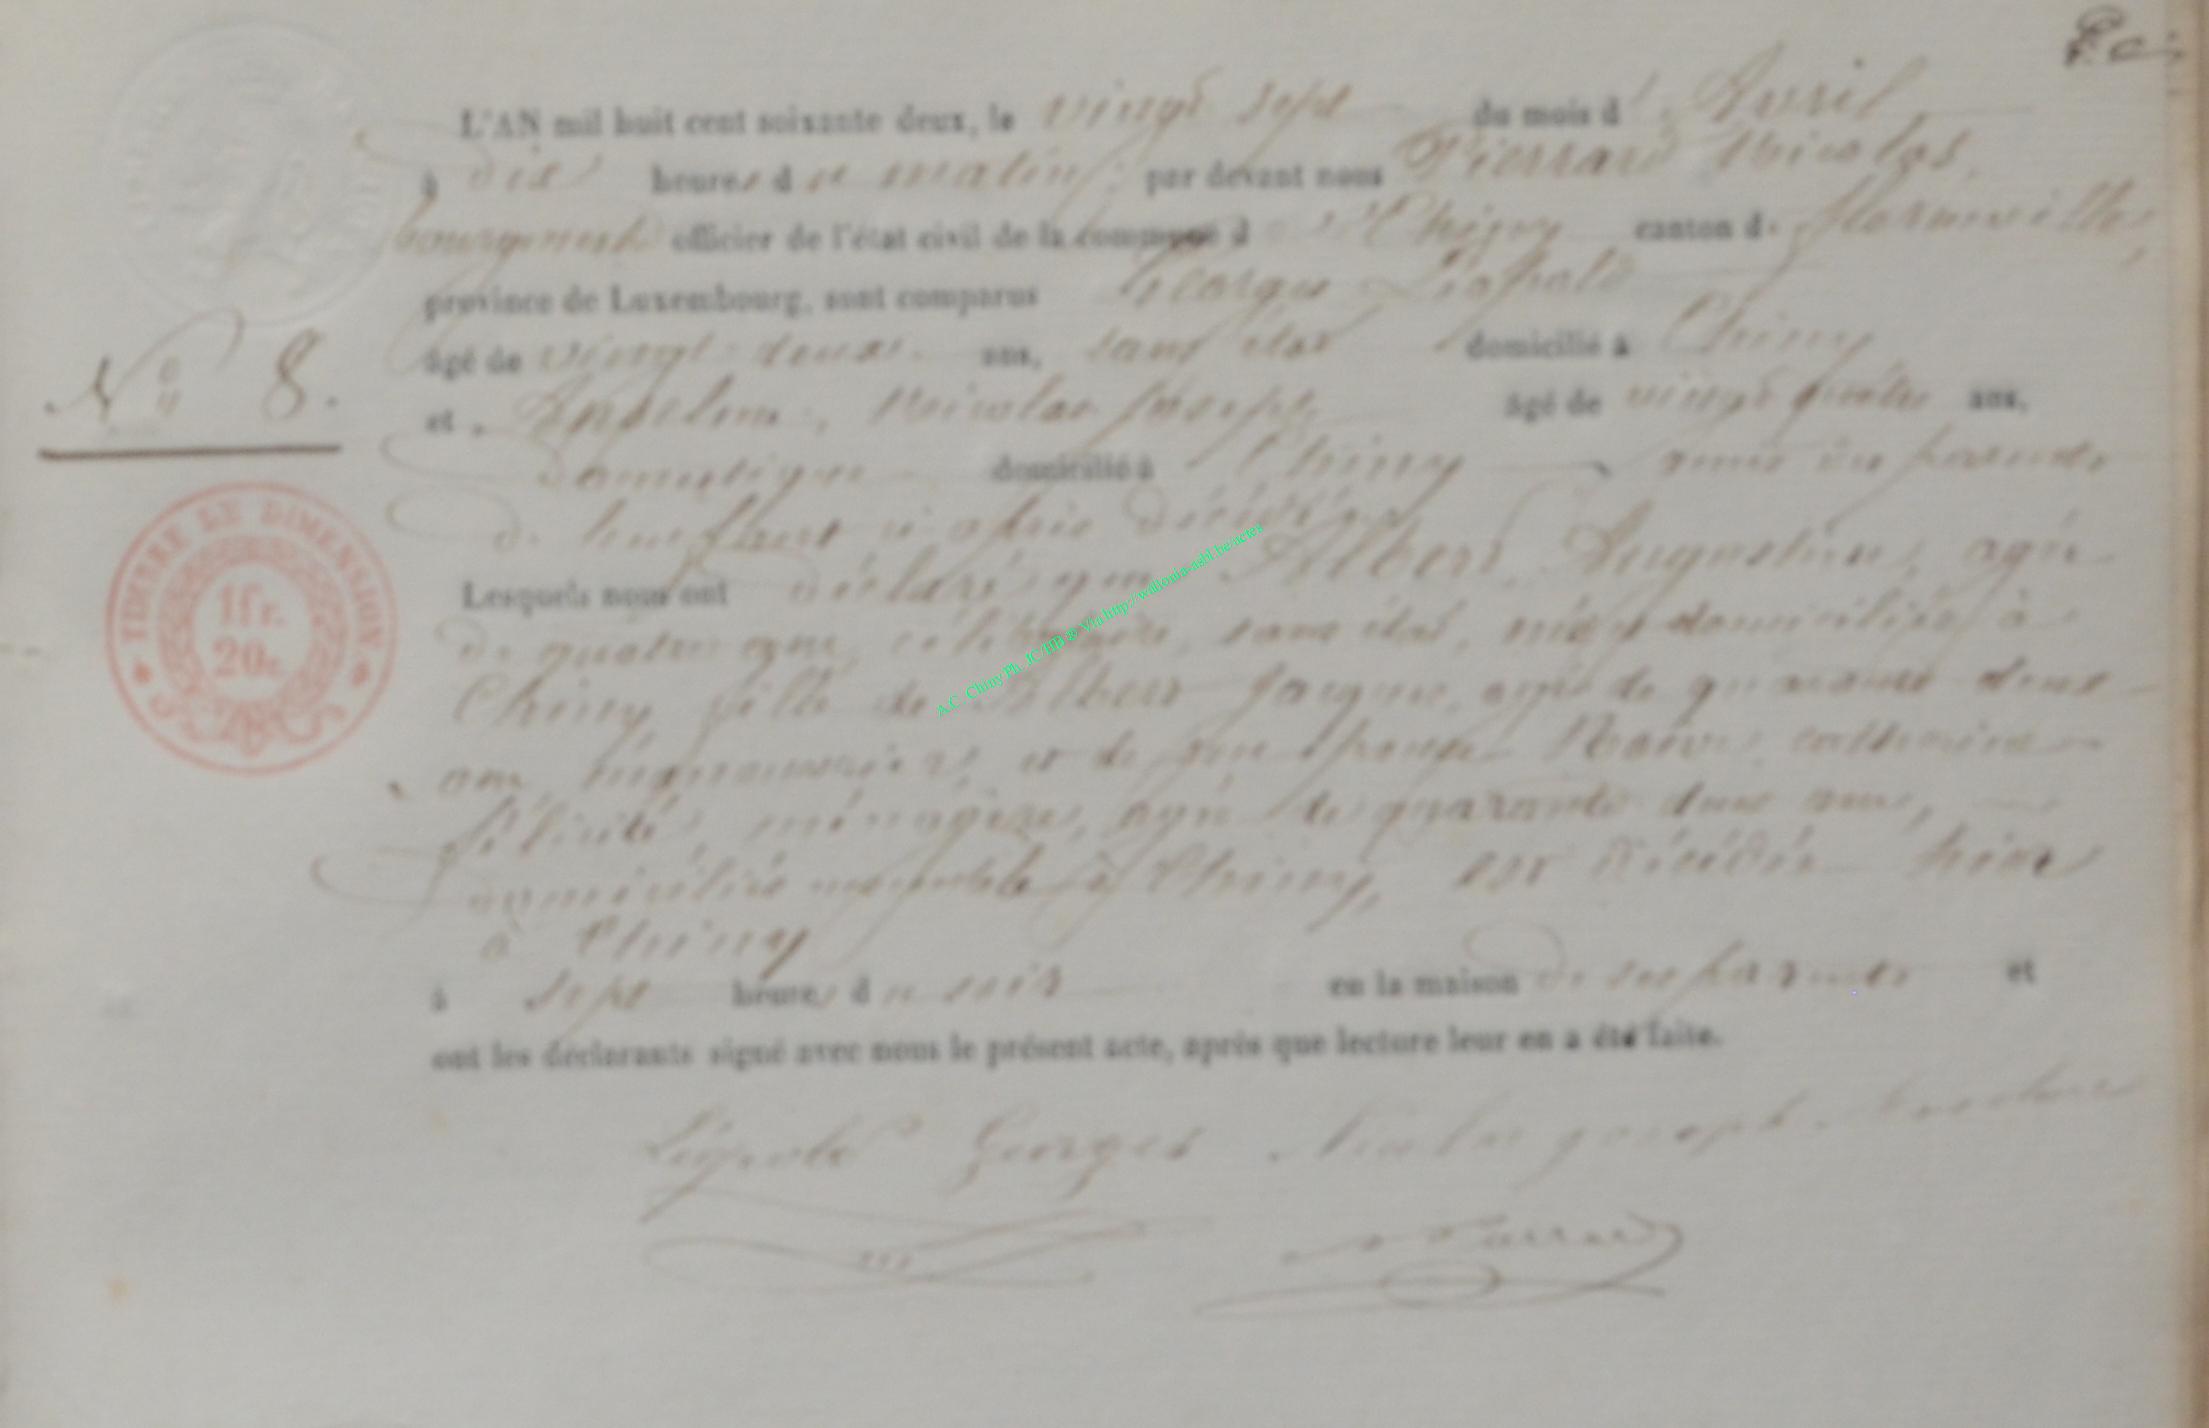 L'AN mil huit cent soixante deux, le vingt sept du mois d'Avril,
à dix heures du matin, par devant nous Pierrard Nicolas,
bourgmestre officier de l'état civil de la commune de Chiny canton de florenville,
province de Luxembourg, sont comparus Georges Léopold
âgé de vingt deux ans, sans état domicilié à Chiny
N° 8.
et Nicolas Joseph âgé de vingt quatre ans,
domestique domicilié à Chiny amis des parents
de l'enfant ci après décédée
Lesquels nous ont déclaré que Albert Augustine, agée
de quatre ans, célibataire, sans état, née et domiciliée à
Chiny fille de Albert Jacques, agé de quarante deux
ans, manoeuvrier, et de son épouse catherine
félicité, ménagère, agée de quarante deux ans,
domiciliés ensemble à Chiny, est décédée hier
à Chiny
à sept heures du soir en la maison de ses parents et
ont les déclarants signé avec nous le présent acte, après que lecture leur en a été faite.
Léopold Georges Nicolas joseph
TIMBRE DE DIMENSION
1fr.
20c.
A.C. Chiny Ph. JC/HB @ Via http://wallonia-asbl.be/actes